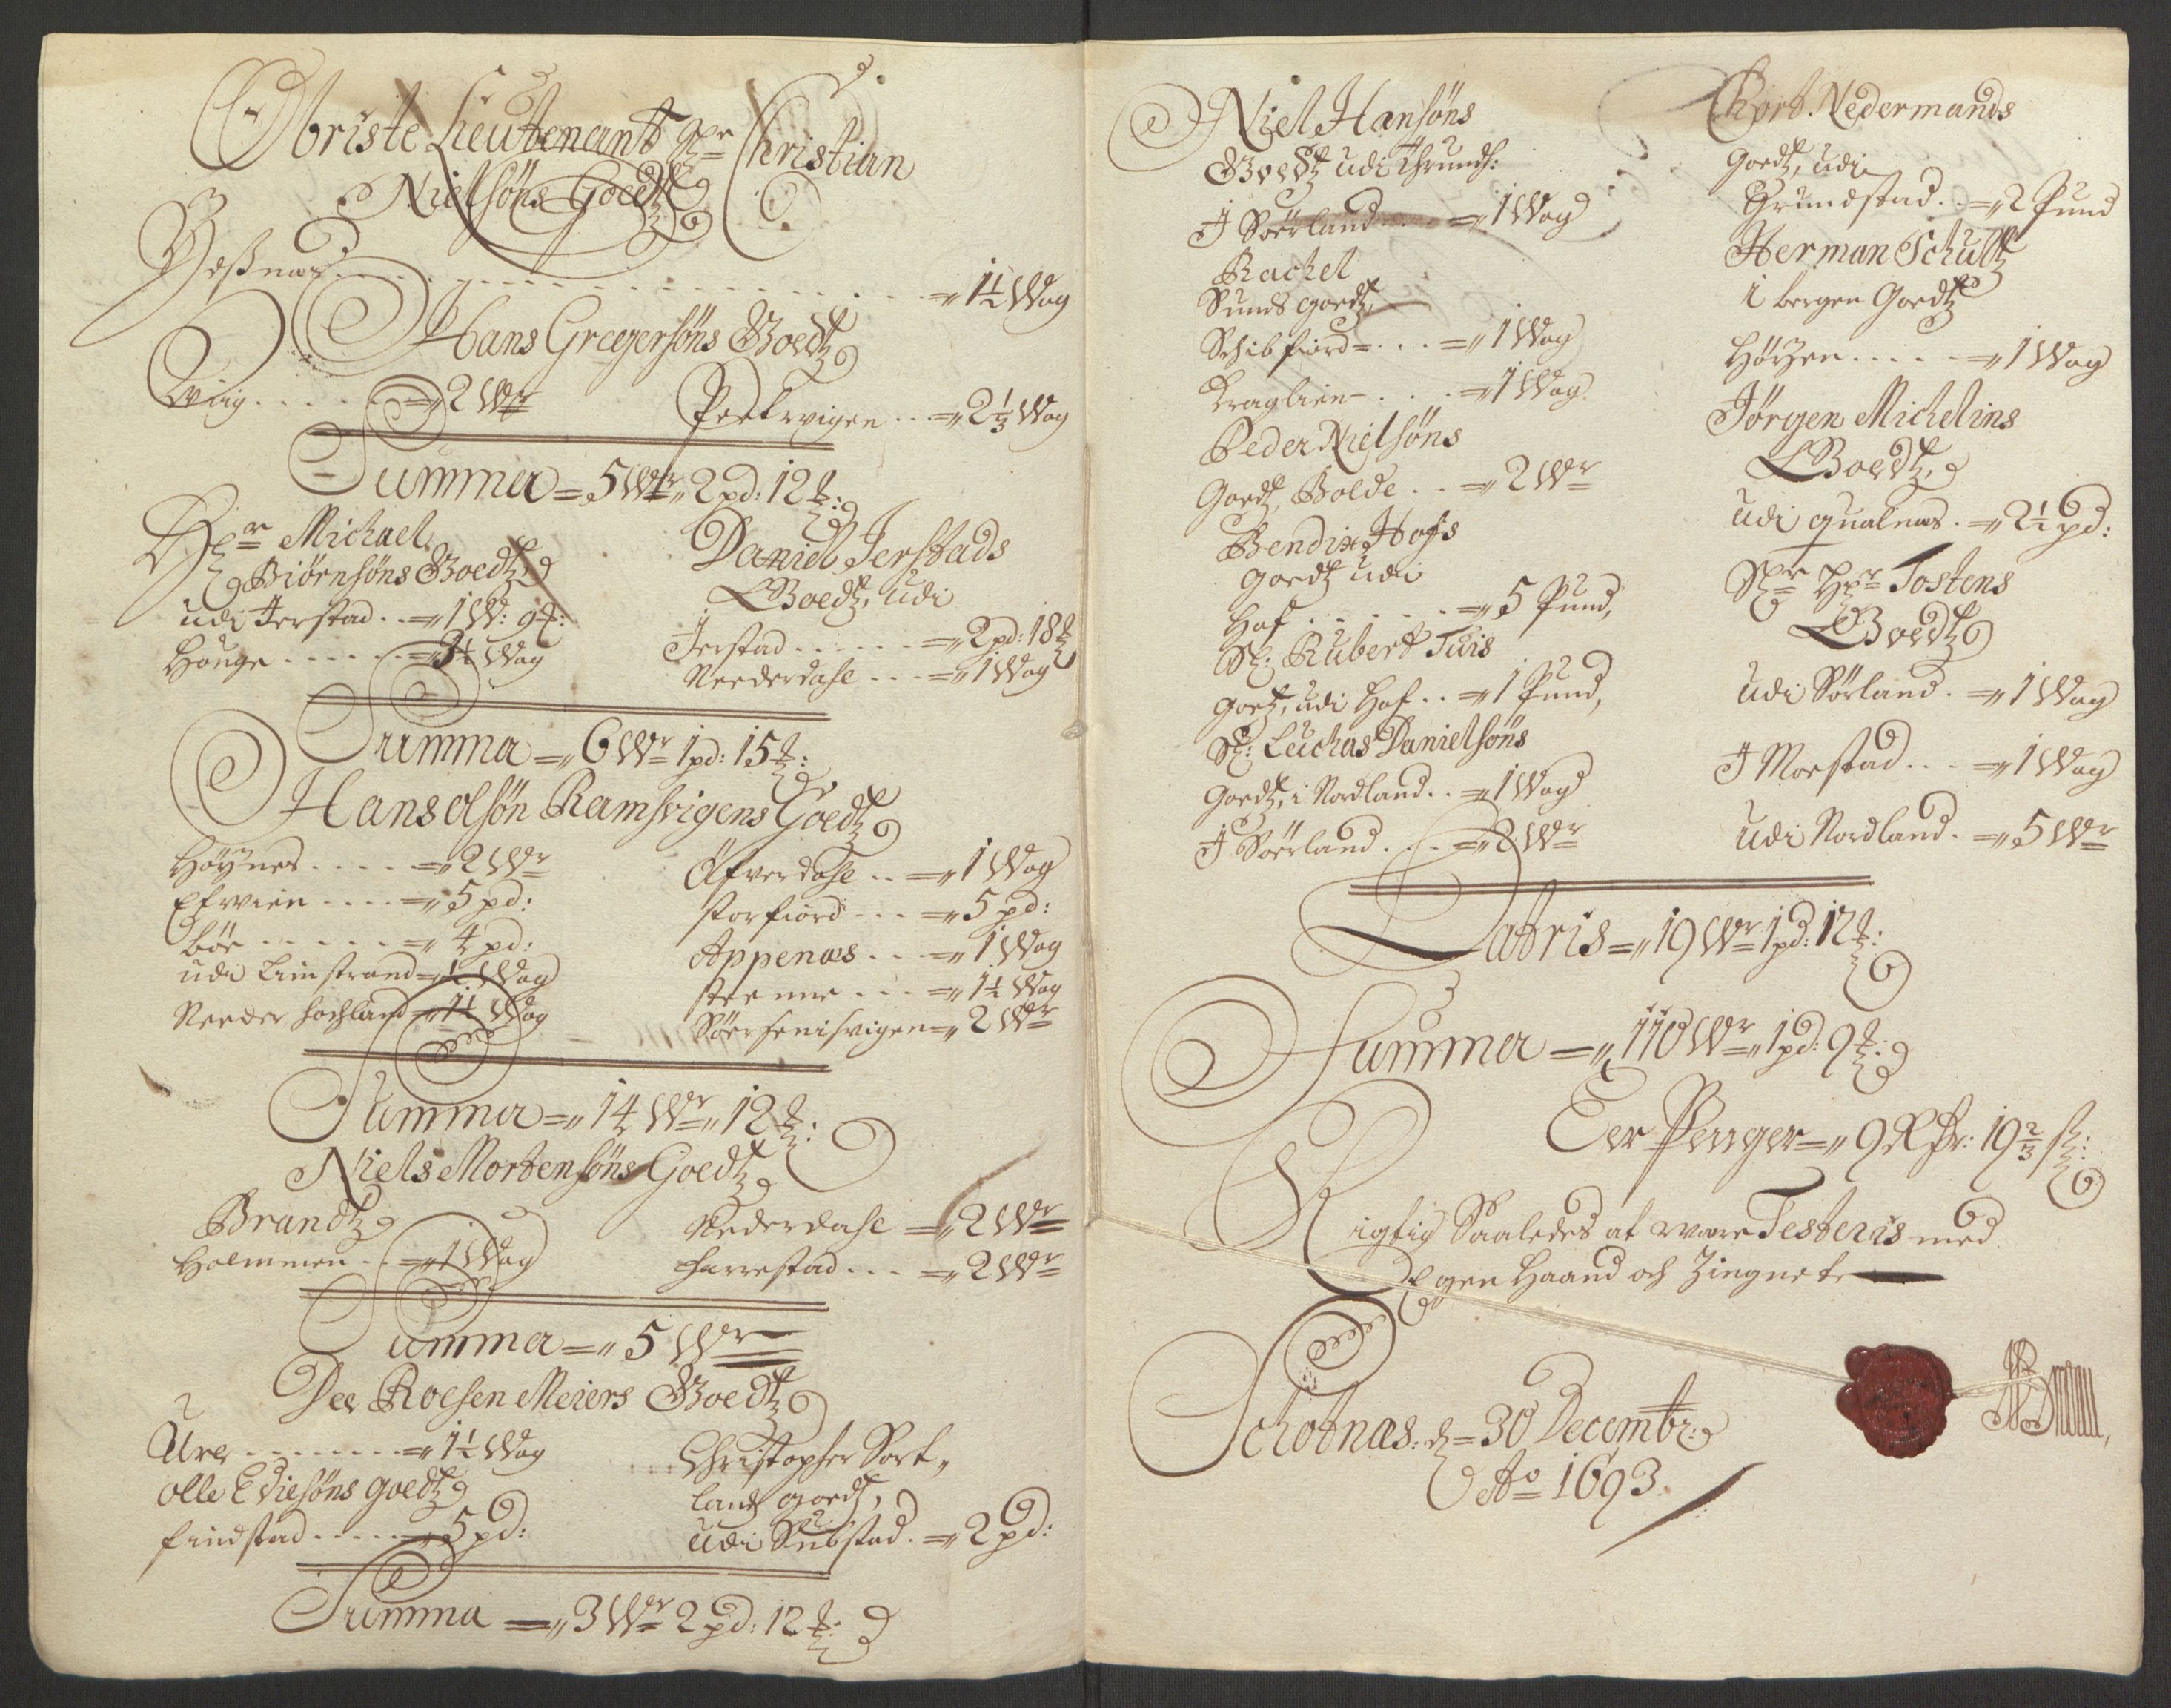 Obriste Lieutenant Hr Christian
Nielsøns Goedtz
Vesnæs ........ = 1½ Wog
Hans Gregersøns Goedtz
Wiig ..... = 2 Wr
Peterwigen .. = 2⅓ Wog
Summa = 5 Wr 2 pd: 12 ℔:
Hr Michael
Biørnsøns Goedtz
udi Jerstad .. = 1 W: 9 ℔:
Houge ...... = 3½ Wog
Daniel Jerstads
Goedtz, udi
Jerstad ...... = 2 pd: 18 ℔
Neederdahl ... = 1 Wog
Summa = 6 Wr 1 pd: 15 ℔:
Hans olsøn Ramsvigens Goedtz
Høynes ..... = 2 Wr
Efwien .... = 5 pd:
Bøe ..... = 4 pd:
udi Limstrand = ½ Wog
Neder Hochland = 1½ Wog
Øfverdahl .. = 1 Wog
Storfiord ... = 5 pd:
Appenæs ... = 1 Wog
Steenne ... = 1½ Wog
Søerfenisvigen = 2 Wr
Summa = 14 Wr 12 ℔:
Niels Mortensøns Goedtz
Brandtz
Holmmen .. = 1 Wog
Nederdahl = 2 Wr
Farrestad ... = 2 Wr
Summa = 5 Wr
Peer Roesen Meiers Goedtz
Ure ........ = 1½ Wog
olle Ediesøns goedtz
Findstad ..... = 5 pd:
Christopher Sort,,
lands goedtz,
udi Substad. = 2 pd:
Summa = 3 Wr 2 pd: 12 ℔:
Niel Hansøns
Goedtz udi Thrunds:
J Søerland ... = 1 Wog
Rachel
Sunds goedtz,
Schibfiord = ... = 1 Wog
Kraglien - ... = 1 Wog
Peder Nielsøns
Goedtz, Bolde .. = 2 Wr
Bendix Hofs
goedtz udi
Hof ...... = 5 Pund,
Sl: Rubert Tuis
goetz, udi Hof .. = 1 Pund,
Sl: Luchas Danielsøns
Goedtz, i Nordland .. = 1 Wog
J Søerland ... = 2 Wr
Chort Nedermands
goedtz, udi
Grundstad .. = 2 Pund
Herman Schultz
i bergen Goedtz
Høyen ..... = 1 Wog
Jørgen Michelins
Goedtz,
udi qualnæs . = 2½ pd:
Sl Hr Tostens
Goedtz
udi Sørland . = 1 Wog
J Moestad ... = 1 Wog
udi Nordland . = 5 Wr
Latris = 19 Wr 1 pd: 12 ℔:
Summa = 110 Wr 1 pd: 9 ℔:
Eer Penger = 9 Rdr: 19⅔ s:
Rigtig Saaledes at were Testeris med
Egen Haand och Zingnete
Schotnæs: d = 30 Decembr:
Ao 1693.